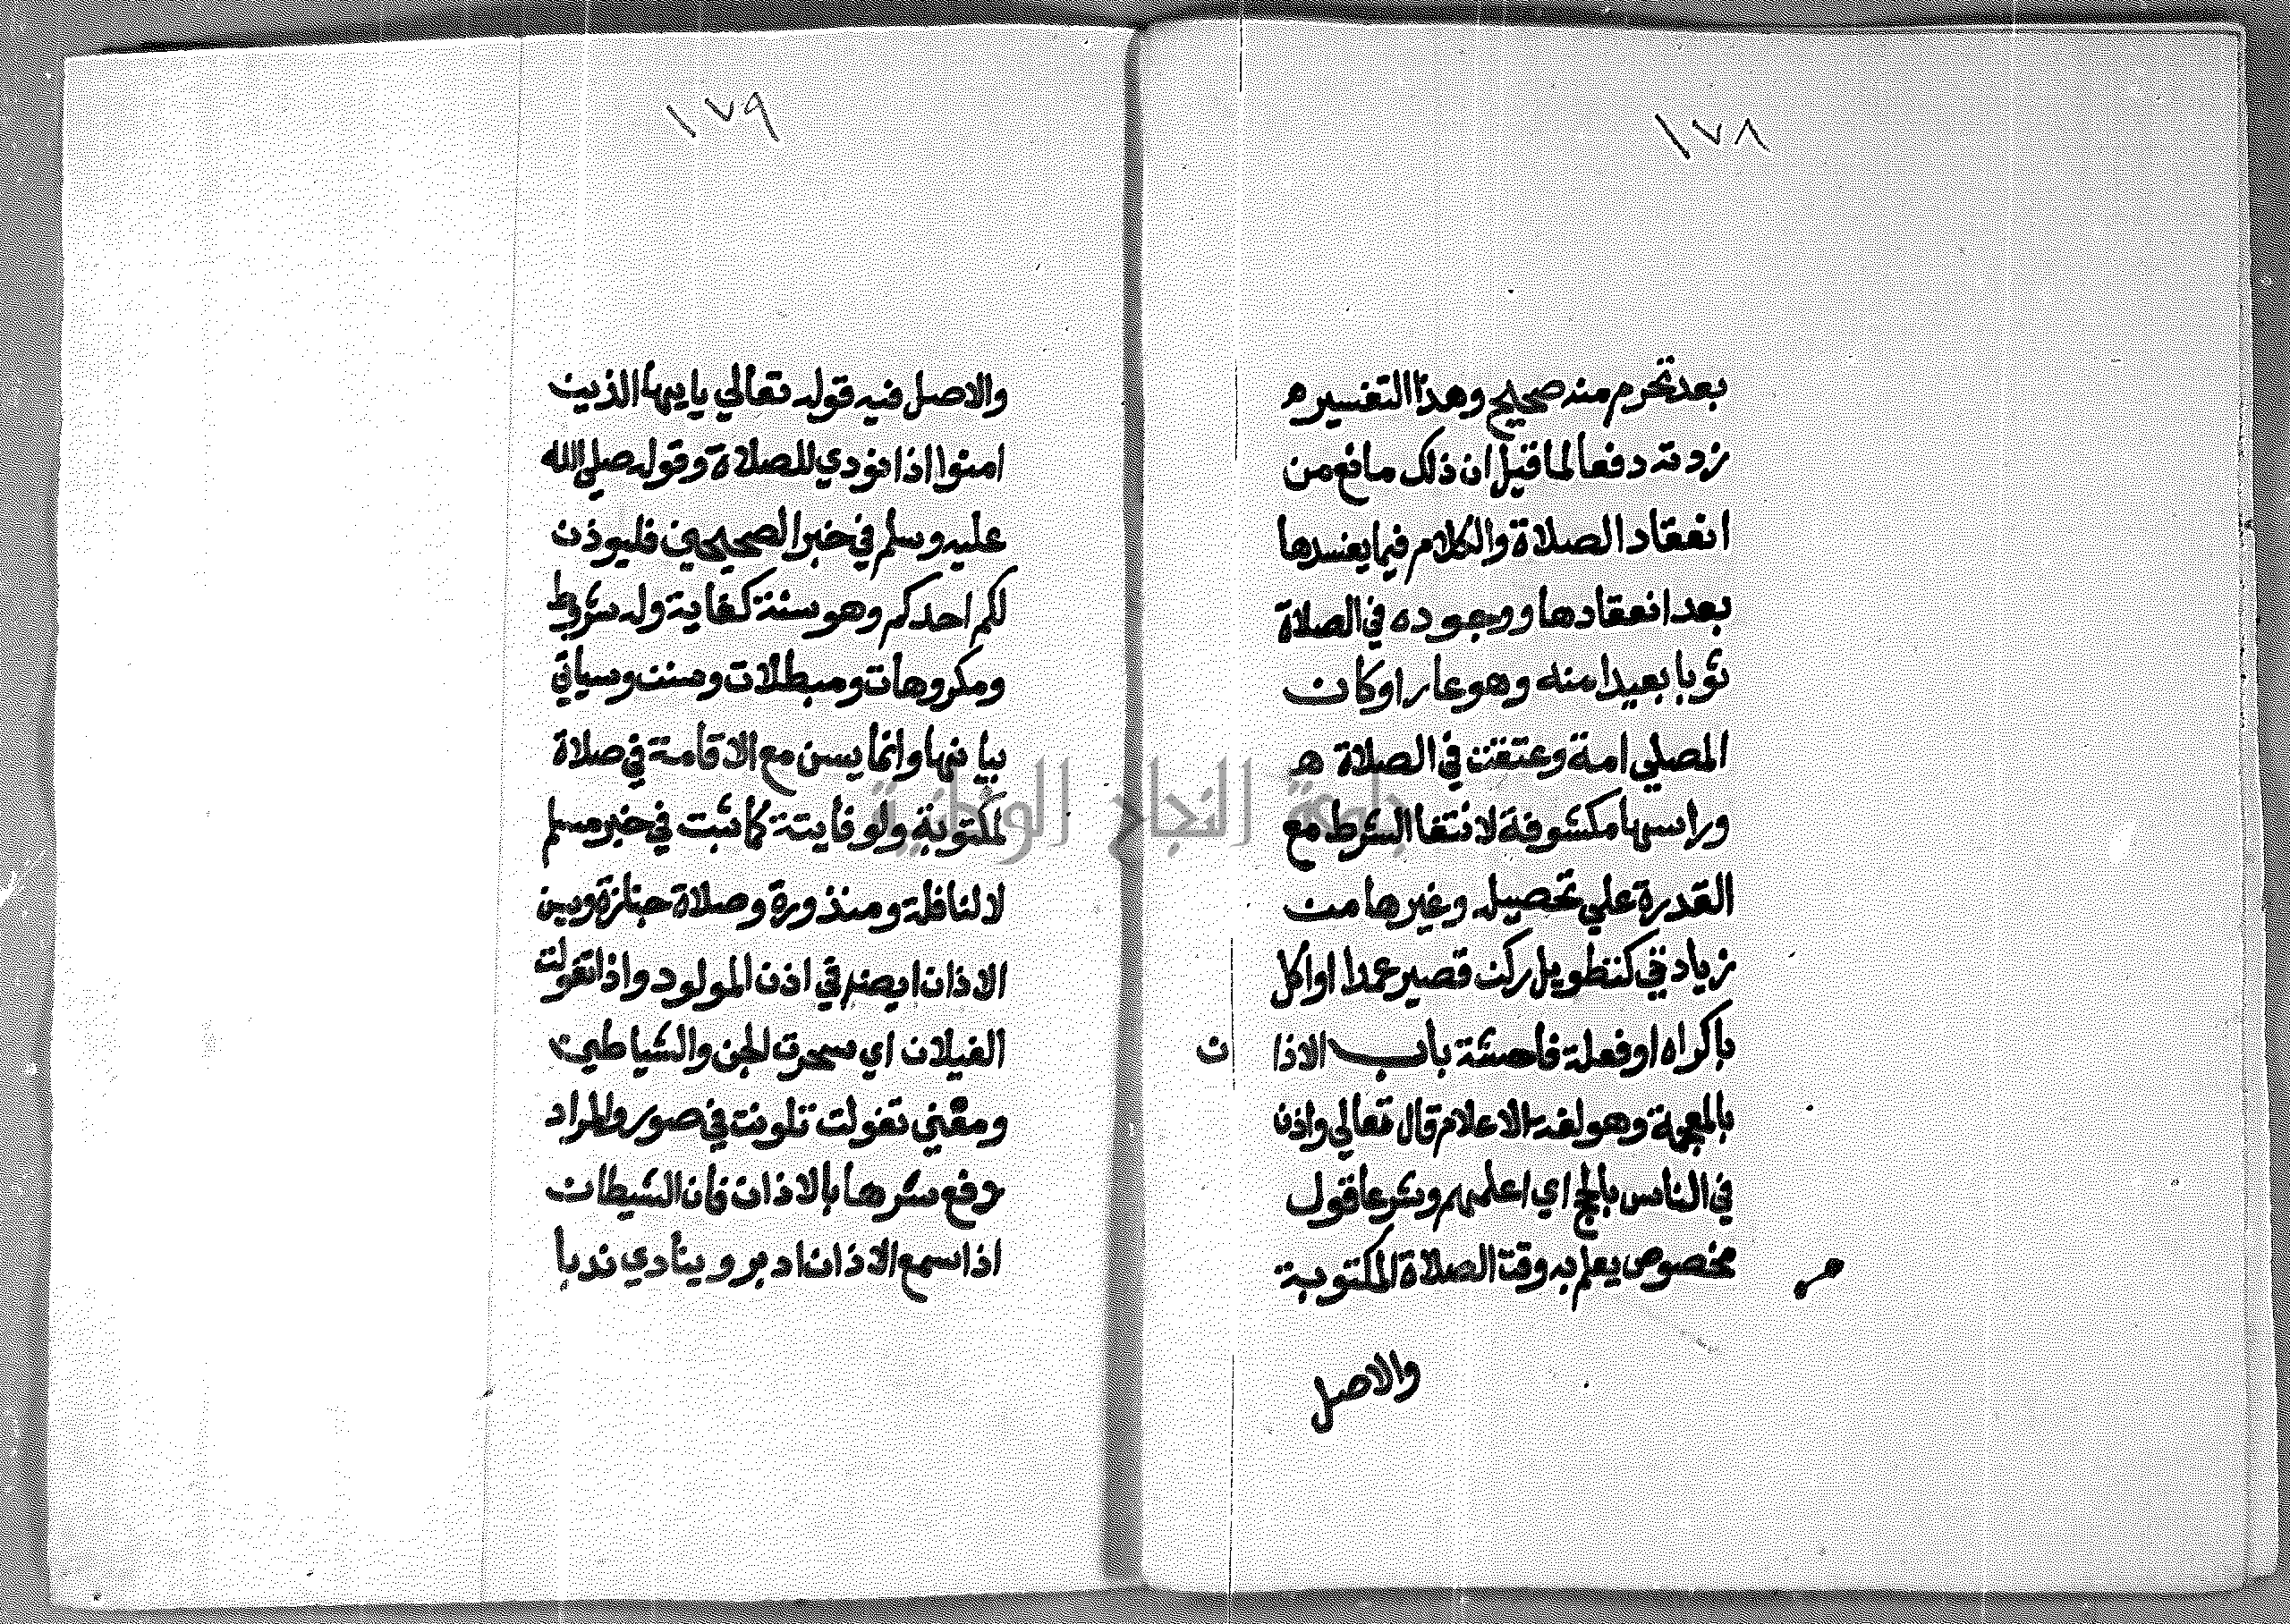 ١٧٨
بعد تحرم منه صحيح وهذا التفسير ه
زدته دفعا لما قيل ان ذلك مانع من
انعقاد الصلاة والكلام فيما يفسدها
بعد انعقادها ووجوده في الصلاة
ثوبا بعيدا منه وهو عار او كان
المصلي امة وعتقت في الصلاة ه
وراسها مكشوفة لانتفا الشرط مع
القدرة علي تحصيله وغيرها من
زيادتي كتطويل ركن قصير عمدا او اكل
باكراه او فعلة فاحشة باب الاذان
بالمعجمة وهو لغة الاعلام قال تعالي واذن
في الناس بالحج اي اعلمهم وشرعا قول
مخصوص يعلم به وقت الصلاة المكتوبة
والاصل
١٧٩
والاصل فيه قوله تعالي يايها الذين
امنوا اذا نودي للصلاة وقوله صلي الله
عليه وسلم في خبر الصحيحين فليوذن
لكم احدكم وهو سنة كفاية وله شرط
ومكروهات ومبطلات وسنن وسياتي
بيانها وانما يسن مع الاقامة في صلاة
لمكتوبة ولو فايتة كما ثبت في خبر مسلم
لا لنافلة ومنذورة وصلاة جنازة ويسن
الاذان ايضا في اذن المولود واذا تغولت
الغيلان اي سحرت الجن والشياطين
ومعني تغولت تلونت في صور والمراد
دفع شرها بالاذان فان الشيطان
اذا سمع الاذان ادبر وينادي ندبا
جامعة النجاح الوطنية